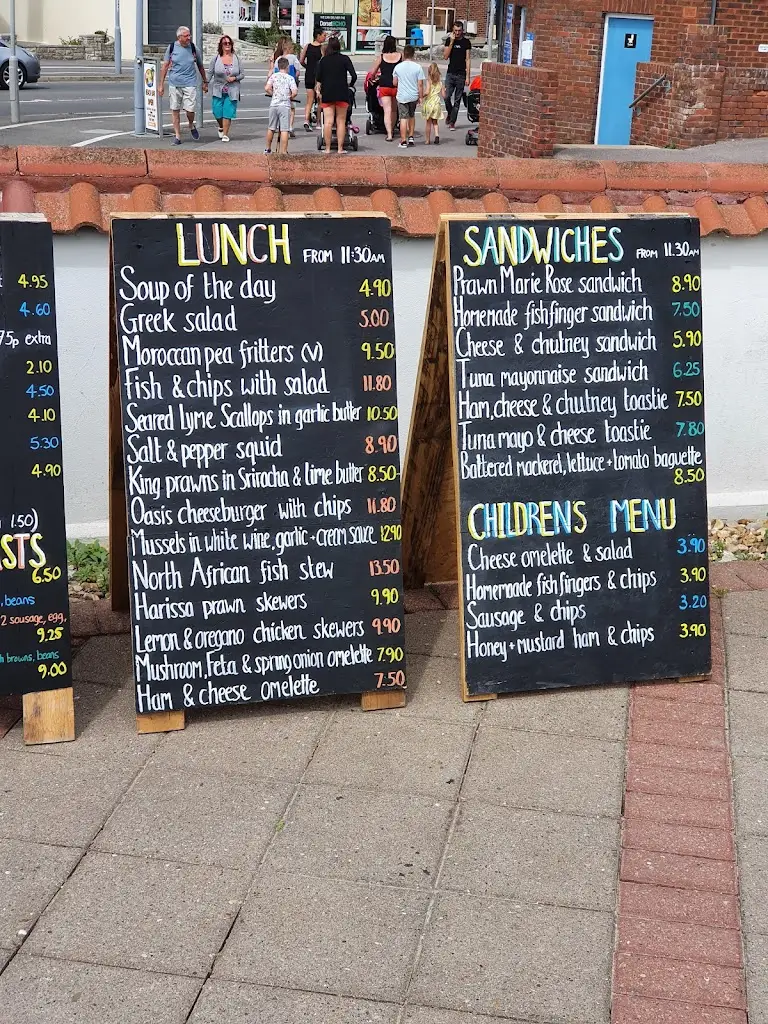 4.95
4.60
75p extra
2.10
4.50
4.10
5.30
4.90
1.50)
STS
6.50
, beans
2 sausage, egg,
9.25
h browns, beans
9.00
LUNCH FROM 11:30AM
Soup of the day 4.90
Greek salad 5.00
Moroccan pea fritters (v) 9.50
Fish & chips with salad 11.80
Seared Lyme Scallops in garlic butter 10.50
Salt & pepper squid 8.90
King prawns in Sriracha & lime butter 8.50
Oasis cheeseburger with chips 11.80
Mussels in white wine, garlic + cream sauce 12.90
North African fish stew 13.50
Harissa prawn skewers 9.90
Lemon & oregano chicken skewers 9.90
Mushroom, Feta & spring onion omelette 7.90
Ham & cheese omelette 7.50
SANDWICHES FROM 11.30AM
Prawn Marie Rose sandwich 8.90
Homemade fishfinger sandwich 7.50
Cheese & chutney sandwich 5.90
Tuna mayonnaise sandwich 6.25
Ham, cheese & chutney toastie 7.50
Tuna mayo & cheese toastie 7.80
Battered mackerel, lettuce + tomato baguette
8.50
CHILDREN'S MENU
Cheese omelette & salad 3.90
Homemade fish fingers & chips 3.90
Sausage & chips 3.20
Honey + mustard ham & chips 3.90